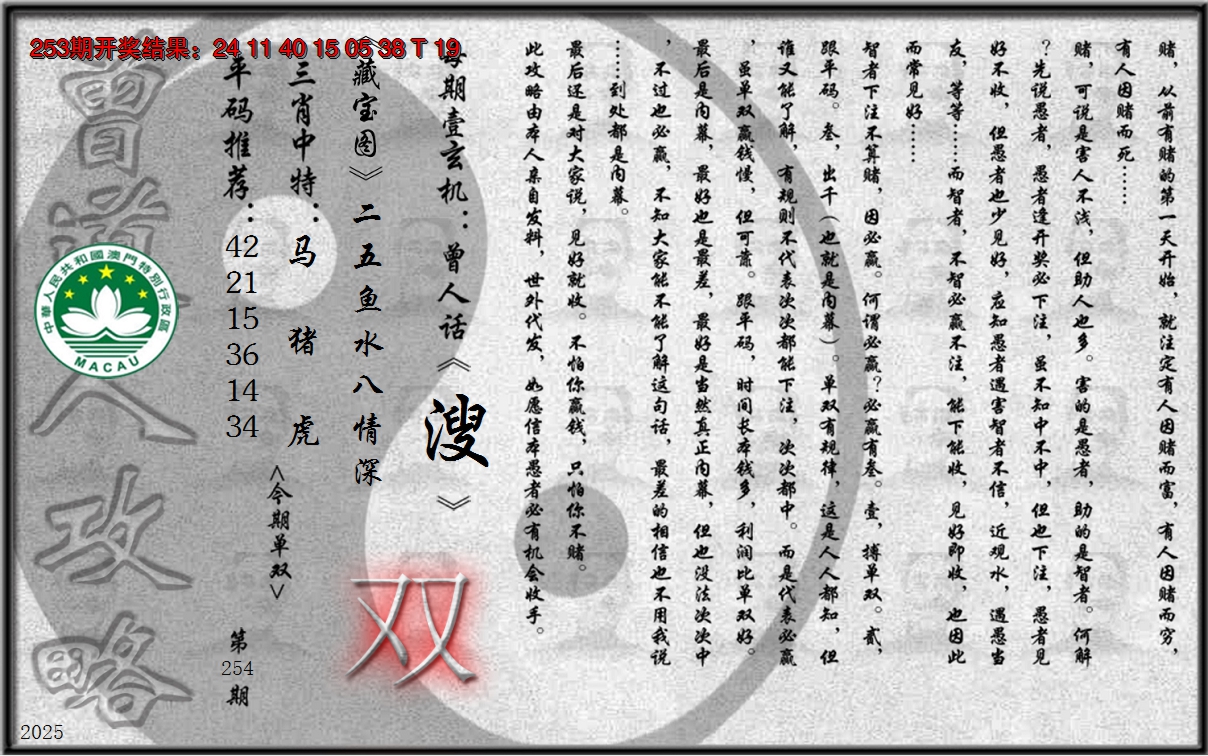 253期开奖结果：24 11 40 15 05 38 T 19
赌，从前有赌的第一天开始，就注定有人因赌而富，有人因赌而穷，
有人因赌而死……
赌，可说是害人不浅，但助人也多。害的是愚者，助的是智者。何解
？先说愚者，愚者逢开奖必下注，虽不知中不中，但也下注，愚者见
好不收，但愚者也少见好，应知愚者遇害智者不信，近观水，遇愚当
友，等等……而智者，不智必赢不注，能下能收，见好即收，也因此
而常见好……
智者下注不算赌，因必赢。何谓必赢？必赢有叁。壹，搏单双。贰，
跟平码。叁，出千（也就是内幕）。单双有规律，这是人人都知，但
谁又能了解，有规则不代表次次都能下注，次次都中。而是代表必赢
，虽单双赢钱慢，但可靠。跟平码，时间长本钱多，利润比单双好。
最后是内幕，最好也是最差，最好是当然真正内幕，但也没法次次中
，不过也必赢，不知大家能不能了解这句话，最差的相信也不用我说
……到处都是内幕。
最后还是对大家说，见好就收。不怕你赢钱，只怕你不赌。
此攻略由本人亲自发料，世外代发，如愿信本愚者必有机会收手。
每期壹玄机：曾人话《溲》
《藏宝图》二五鱼水八情深
双
三肖中特：马 猪 虎
<今期单双>
平码推荐：
42
21
15
36
14
34
第
254
期
曾道人攻略
中華人民共和國澳門特別行政區
MACAU
2025